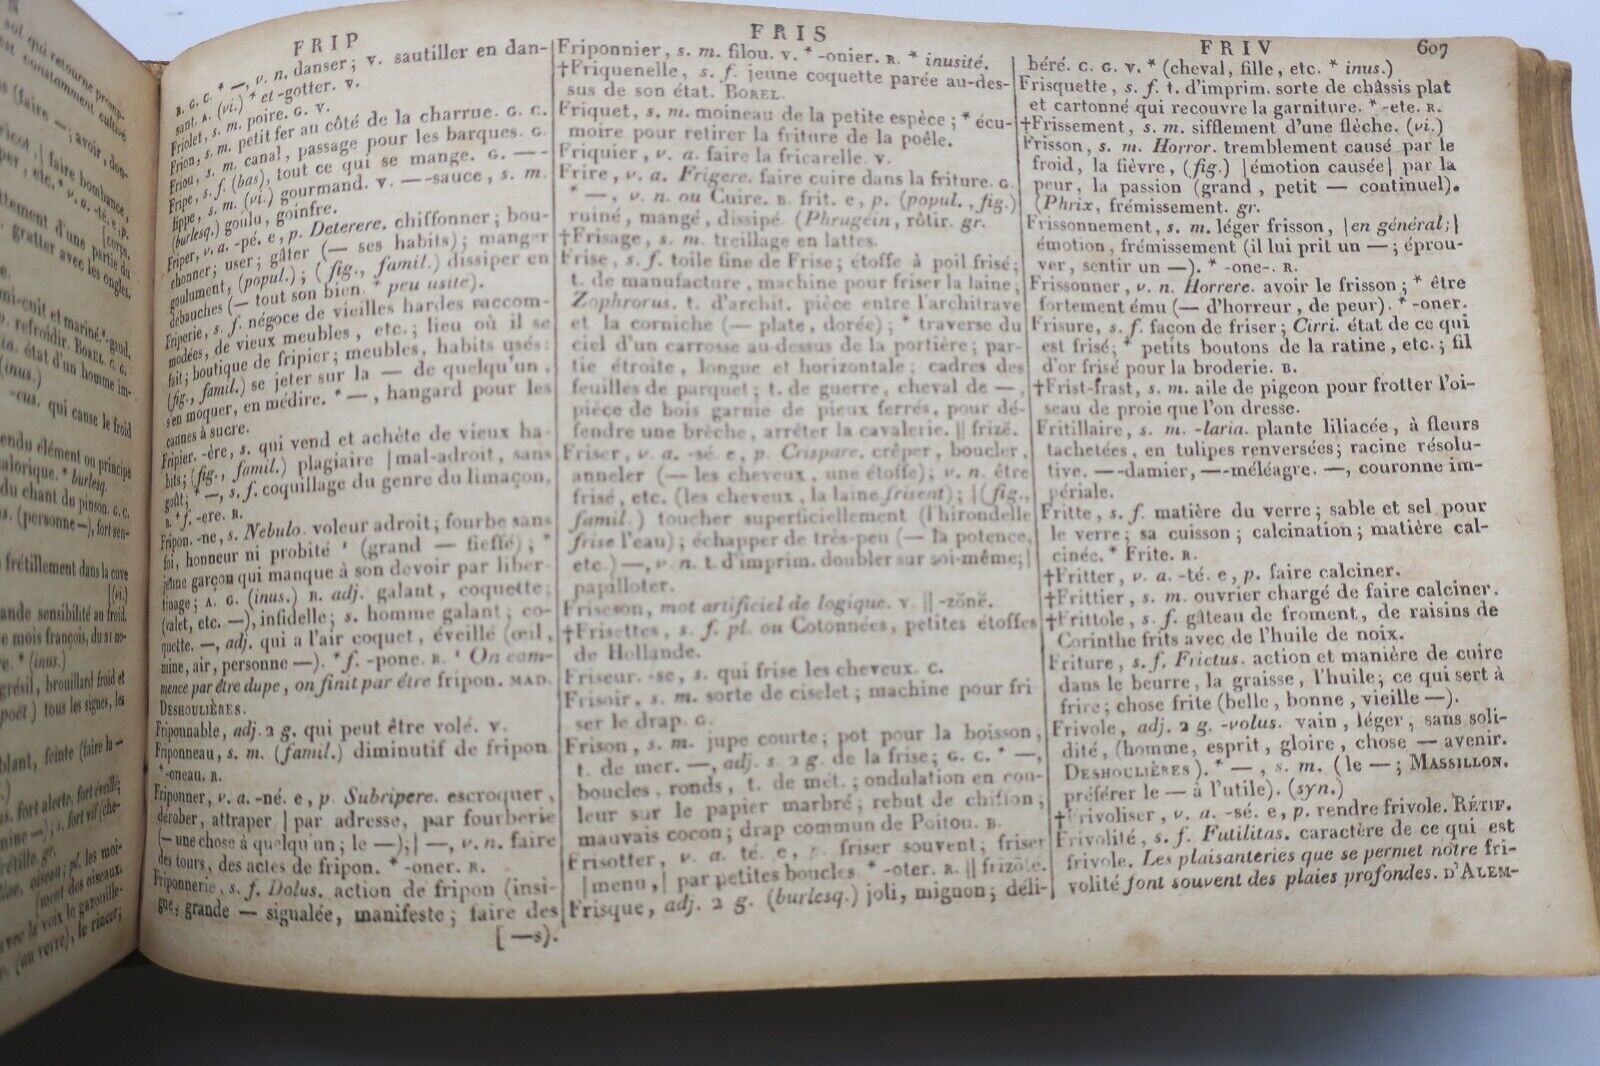 FRIP
R. G. C. * —, v. n. danser; v. sautiller en dan-
sant. A. (vi.) * et -gotter. V.
Friolet, s. m. poire. G. V.
Frion, s. m. petit fer au côté de la charrue. G. C.
Friou, s. m. canal, passage pour les barques. G.
Fripe, s. f. (bas), tout ce qui se mange. G. — -
s. m. (vi.) gourmand. V. — -sauce, s. m.
(burlesq.) goulu, goinfre.
Friper, v. a. -pé. e, p. Deterere. chiffonner; bou-
chonner; user; gâter (— ses habits); manger
goulument, (popul.); (fig., famil.) dissiper en
débauches (— tout son bien. * peu usité).
Friperie, s. f. négoce de vieilles hardes raccom-
modées, de vieux meubles, etc.; lieu où il se
fait; boutique de fripier; meubles, habits usés:
(fig., famil.) se jeter sur la — de quelqu'un,
s'en moquer, en médire. * —, hangard pour les
cannes à sucre.
Fripier. -ère, s. qui vend et achète de vieux ha-
bits; (fig., famil.) plagiaire |mal-adroit, sans
goût; * —, s. f. coquillage du genre du limaçon.
R. * f. -ere. R.
Fripon. -ne, s. Nebulo. voleur adroit; fourbe sans
foi, honneur ni probité ¹ (grand — fieffé); *
jeune garçon qui manque à son devoir par liber-
tinage; A. G. (inus.) B. adj. galant, coquette;
(valet, etc. —), infidelle; s. homme galant; co-
quette. —, adj. qui a l'air coquet, éveillé (œil,
mine, air, personne —). * f. -pone. R. ¹ On com-
mence par être dupe, on finit par être fripon. MAD.
DESHOULIÈRES.
Friponnable, adj. 2 g. qui peut être volé. V.
Friponneau, s. m. (famil.) diminutif de fripon
* -oneau. R.
Friponner, v. a. -né. e, p. Subripere. escroquer,
dérober, attraper | par adresse, par fourberie
(— une chose à quelqu'un; le —);| —, v. n. faire
des tours, des actes de fripon. * -oner. R.
Friponnerie, s. f. Dolus. action de fripon (insi-
gne, grande — signalée, manifeste; faire des
[ —s).
FRIS
Friponnier, s. m. filou. V. * -onier. R. * inusité.
†Friquenelle, s. f. jeune coquette parée au-des-
sus de son état. BOREL.
Friquet, s. m. moineau de la petite espèce; * écu-
moire pour retirer la friture de la poêle.
Friquier, v. a. faire la fricarelle. V.
Frire, v. a. Frigere. faire cuire dans la friture. G.
* —, v. n. ou Cuire. B. frit. e, p. (popul., fig.)
ruiné, mangé, dissipé. (Phrugein, rôtir. gr.
†Frisage, s. m. treillage en lattes.
Frise, s. f. toile fine de Frise; étoffe à poil frisé;
t. de manufacture, machine pour friser la laine;
Zophrorus. t. d'archit. pièce entre l'architrave
et la corniche (— plate, dorée); * traverse du
ciel d'un carrosse au-dessus de la portière; par-
tie étroite, longue et horizontale; cadres des
feuilles de parquet; t. de guerre, cheval de —,
pièce de bois garnie de pieux ferrés, pour dé-
fendre une brèche, arrêter la cavalerie. || frizé.
Friser, v. a. -sé. e, p. Crispare. crêper, boucler,
anneler (— les cheveux, une étoffe); v. n. être
frisé, etc. (les cheveux, la laine frisent); |(fig.,
famil.) toucher superficiellement (l'hirondelle
frise l'eau); échapper de très-peu (— la potence,
etc.) —, v. n. t. d'imprim. doubler sur soi-même;|
papilloter.
Friseson, mot artificiel de logique. V. || -zŏnĕ.
†Frisettes, s. f. pl. ou Cotonnées, petites étoffes
de Hollande.
Friseur. -se, s. qui frise les cheveux. C.
Frisoir, s. m. sorte de ciselet; machine pour fri-
ser le drap. G.
Frison, s. m. jupe courte; pot pour la boisson,
t. de mer. —, adj. s. 2 g. de la frise; G. C. * —,
boucles, ronds, t. de mét.; ondulation en cou-
leur sur le papier marbré; rebut de chiffon;
mauvais cocon; drap commun de Poitou. B.
Frisotter, v. a. té. e, p. friser souvent; friser
|menu,| par petites boucles * -oter. R. || frizŏte.
Frisque, adj. 2 g. (burlesq.) joli, mignon; déli-
FRIV 607
béré. C. G. V. * (cheval, fille, etc. * inus.)
Frisquette, s. f. t. d'imprim. sorte de châssis plat
et cartonné qui recouvre la garniture. * -ete. R.
†Frissement, s. m. sifflement d'une flèche. (vi.)
Frisson, s. m. Horror. tremblement causé par le
froid, la fièvre, (fig.) |émotion causée| par la
peur, la passion (grand, petit — continuel).
(Phrix, frémissement. gr.
Frissonnement, s. m. léger frisson, |en général;|
émotion, frémissement (il lui prit un —; éprou-
ver, sentir un —). * -one-. R.
Frissonner, v. n. Horrere. avoir le frisson; * être
fortement ému (— d'horreur, de peur). * -oner.
Frisure, s. f. façon de friser; Cirri. état de ce qui
est frisé; * petits boutons de la ratine, etc.; fil
d'or frisé pour la broderie. B.
†Frist-frast, s. m. aile de pigeon pour frotter l'oi-
seau de proie que l'on dresse.
Fritillaire, s. m. -laria. plante liliacée, à fleurs
tachetées, en tulipes renversées; racine résolu-
tive. — -damier, — -méléagre. —, couronne im-
périale.
Fritte, s. f. matière du verre; sable et sel pour
le verre; sa cuisson; calcination; matière cal-
cinée. * Frite. R.
†Fritter, v. a. -té. e, p. faire calciner.
†Frittier, s. m. ouvrier chargé de faire calciner.
†Frittole, s. f. gâteau de froment, de raisins de
Corinthe frits avec de l'huile de noix.
Friture, s. f. Frictus. action et manière de cuire
dans le beurre, la graisse, l'huile; ce qui sert à
frire; chose frite (belle, bonne, vieille —).
Frivole, adj. 2 g. -volus. vain, léger, sans soli-
dité, (homme, esprit, gloire, chose — avenir.
DESHOULIÈRES). * —, s. m. (le —; MASSILLON.
préférer le — à l'utile). (syn.)
†Frivoliser, v. a. -sé. e, p. rendre frivole. RÉTIF.
Frivolité, s. f. Futilitas. caractère de ce qui est
frivole. Les plaisanteries que se permet notre fri-
volité font souvent des plaies profondes. D'ALEM-